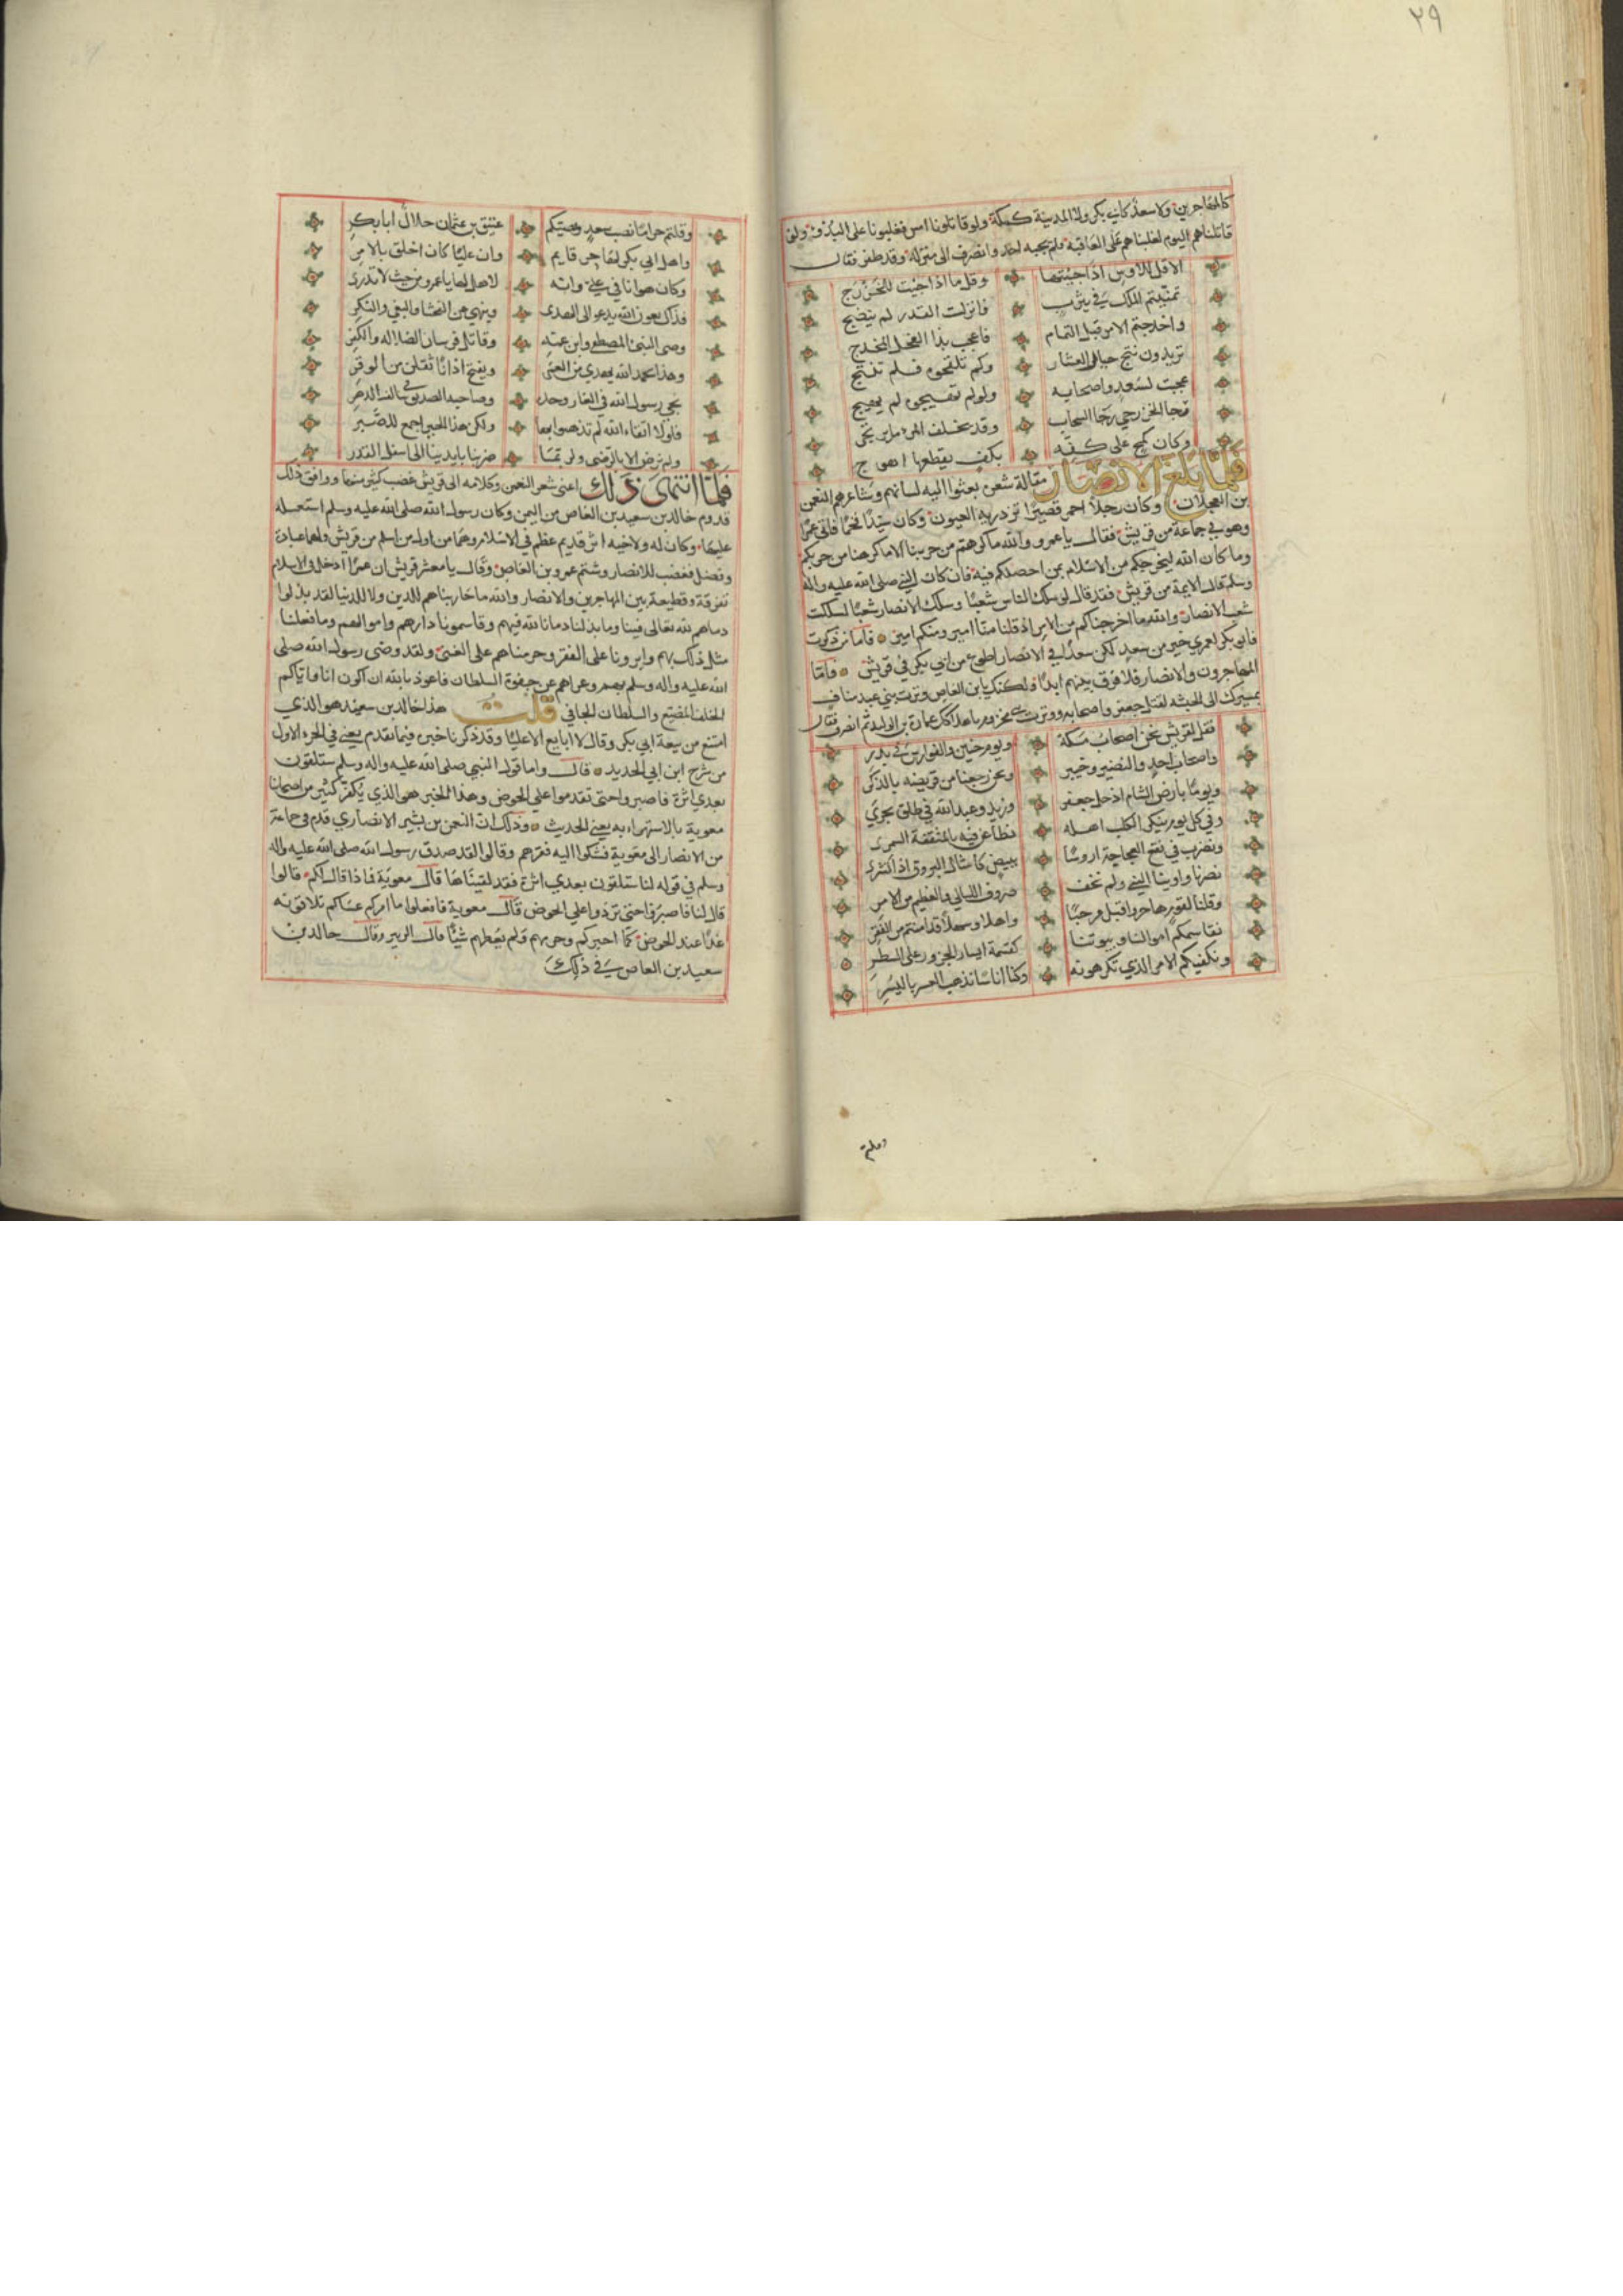 ٢٩
كالمهاجرين ولا سعد كابي بكر ولا المدينة كمكة ولو قاتلونا امس فغلبونا على البدؤ ولو
قاتلناهم اليوم لغلبناهم على العاقبة فلم يجبه احد وانصرف الى منزله وقد ظفر فقال
الا قل للاوس اذا جيتها وقل ما اذا جئت للخزرج
تمنيتم الملك في يثرب فانزلت القدر لم ينضج
واخدجتم الامر قبل التمام فاعجب بذا المخدج
تريدون نتج حيال العشار ولم تلقحوه فلم تنتج
عجبت لسعد واصحابه ولو لم تهيجوه لم يهيج
رجا الخزرجي رجا السحاب وقد يخلف المرء ما يرتجي
وكان كمح على كفه بكف يقطعها اهوج
فلما بلغ الانصار مقالة شعره بعثوا اليه لسانهم وشاعرهم النعمن
بن العجلان وكان رجلا احمر قصيرا تزدريه العيون وكان سيدا فخما فاتى عمرا
وهو في جماعة من قريش فقال يا عمرو والله ما كرهتم من حربنا الا ما كرهنا من حربكم
وما كان الله ليخرجكم من الاسلام بمن ادخلكم فيه فان كان النبي صلى الله عليه واله
وسلم قال الايمة من قريش فقد قال لو سلك الناس شعبا وسلك الانصار شعبا لسلكت
شعب الانصار والله ما اخرجناكم من الامر اذ قلنا منا امير ومنكم امير فاما من ذكرت
فابو بكر لعمري خير من سعد لكن سعدا في الانصار اطوع من ابي بكر في قريش فاما
المهاجرون والانصار فلا فرق بينهم ابدا ولكنك يا بن العاص وترت بني عبد مناف
بمسيرك الى الحبشه لقتل جعفر واصحابه ووترت بني مخزوم باهلاك عمارة بن الوليد ثم انصرف فقال
فقل لقريش نحن اصحاب مكة ويوم حنين والفوارس في بدر
واصحاب احد والنضير وخيبر ونحن رجعنا من قريضه بالذكر
ويوما بارض الشام اذ خل جعفر وزيد وعبد الله في علق يجري
وفي كل يوم ينكر الكلب اهله نطاعن فيه بالمثقفة السمر
ونضرب في نقع العجاجة اروسا ببيض كامثال البروق اذ اتسري
نصرنا واوينا النبي ولم نخف صروف الليالي والعظيم من الامر
وقلنا لقوم هاجروا قبل مرحبا واهلا وسهلا قد امنتم من الفقر
نقاسمكم اموالنا وبيوتنا كقسمة ايسار الجزور على الشطر
ونكفيكم الامر الذي تكرهونه وكنا اناسا نذهب العسر باليسر
وقلتم
وقلتم حرام نصب سعد ونصبكم عتيق بن عثمان حلال ابا بكر
واهل ابي بكر لها خير قايم وان عليا كان اخلق بالامر
وكان هوانا في علي وانه لاهل لها يا عمرو من حيث لا تدري
فذاك بعون الله يدعو الى الهدى وينهى عن الفحشا والبغي والنكر
وصي النبي المصطفى وابن عمه وقاتل فرسان الضلاله والكفر
وهذا بحمد الله يهدي من العمى ويفتح اذانا ثقلن من الوقر
نجي رسول الله في الغار وحده وصاحبه الصديق في سالف الدهر
فلولا اتقاء الله لم تذهبوا بها ولكن هذا الخير اجمع للصبر
ولم نرض الا بالرضى ولربما ضربنا بايدينا الى اسفل القدر
فلما انتهى ذلك اعنى شعر النعمن وكلامه الى قريش غضب كثير منها ووافق ذلك
قدوم خالد بن سعيد بن العاص من اليمن وكان رسول الله صلى الله عليه وسلم استعمله
عليها وكان له ولاخيه اثر قديم عظم في الاسلام وهما من اول من اسلم من قريش ولهما عبادة
وفضل فغضب للانصار وشتم عمرو بن العاص وقال يا معشر قريش ان عمرا ادخل في الاسلام
تفرقة وقطيعة بين المهاجرين والانصار والله ما حاربناهم للدين ولا للدنيا لقد بذلوا
دماهم لله تعالى فينا وما بذلنا دمانا لله فيهم وقاسمونا دارهم واموالهم وما فعلنا
مثل ذلك بهم واثرونا على الفقر وحرمناهم على الغنى ولقد وصى رسول الله صلى
الله عليه واله وسلم بهم وعزاهم عن جفوة السلطان فاعوذ بالله ان اكون انا واياكم
الخلف المضيع والسلطان الجافي قلت هذا خالد بن سعيد هو الذي
امتنع من بيعة ابي بكر وقال لا ابايع الا عليا وقد ذكرنا خبره فيما تقدم يعني في الجزء الاول
من شرح ابن ابي الحديد قال واما قول النبي صلى الله عليه واله وسلم ستلقون
بعدي اثرة فاصبروا حتى تقدموا على الحوض وهذا الخبر هو الذي يكفر كثير من اصحابنا
معوية بالاستهزاء به يعني الحديث وذلك ان النعمن بن بشير الانصاري قدم في جماعة
من الانصار الى معوية فشكوا اليه فقرهم وقالوا لقد صدق رسول الله صلى الله عليه واله
وسلم في قوله لنا ستلقون بعدي اثرة فقد لقيناها قال معوية فماذا قال لكم قالوا
قال لنا فاصبروا حتى تردوا على الحوض قال معوية فافعلوا ما امركم عساكم تلاقونه
غدا عند الحوض كما اخبركم وحرمهم ولم يعطهم شيئا قال الزبير وقال خالد بن
سعيد بن العاص في ذلك